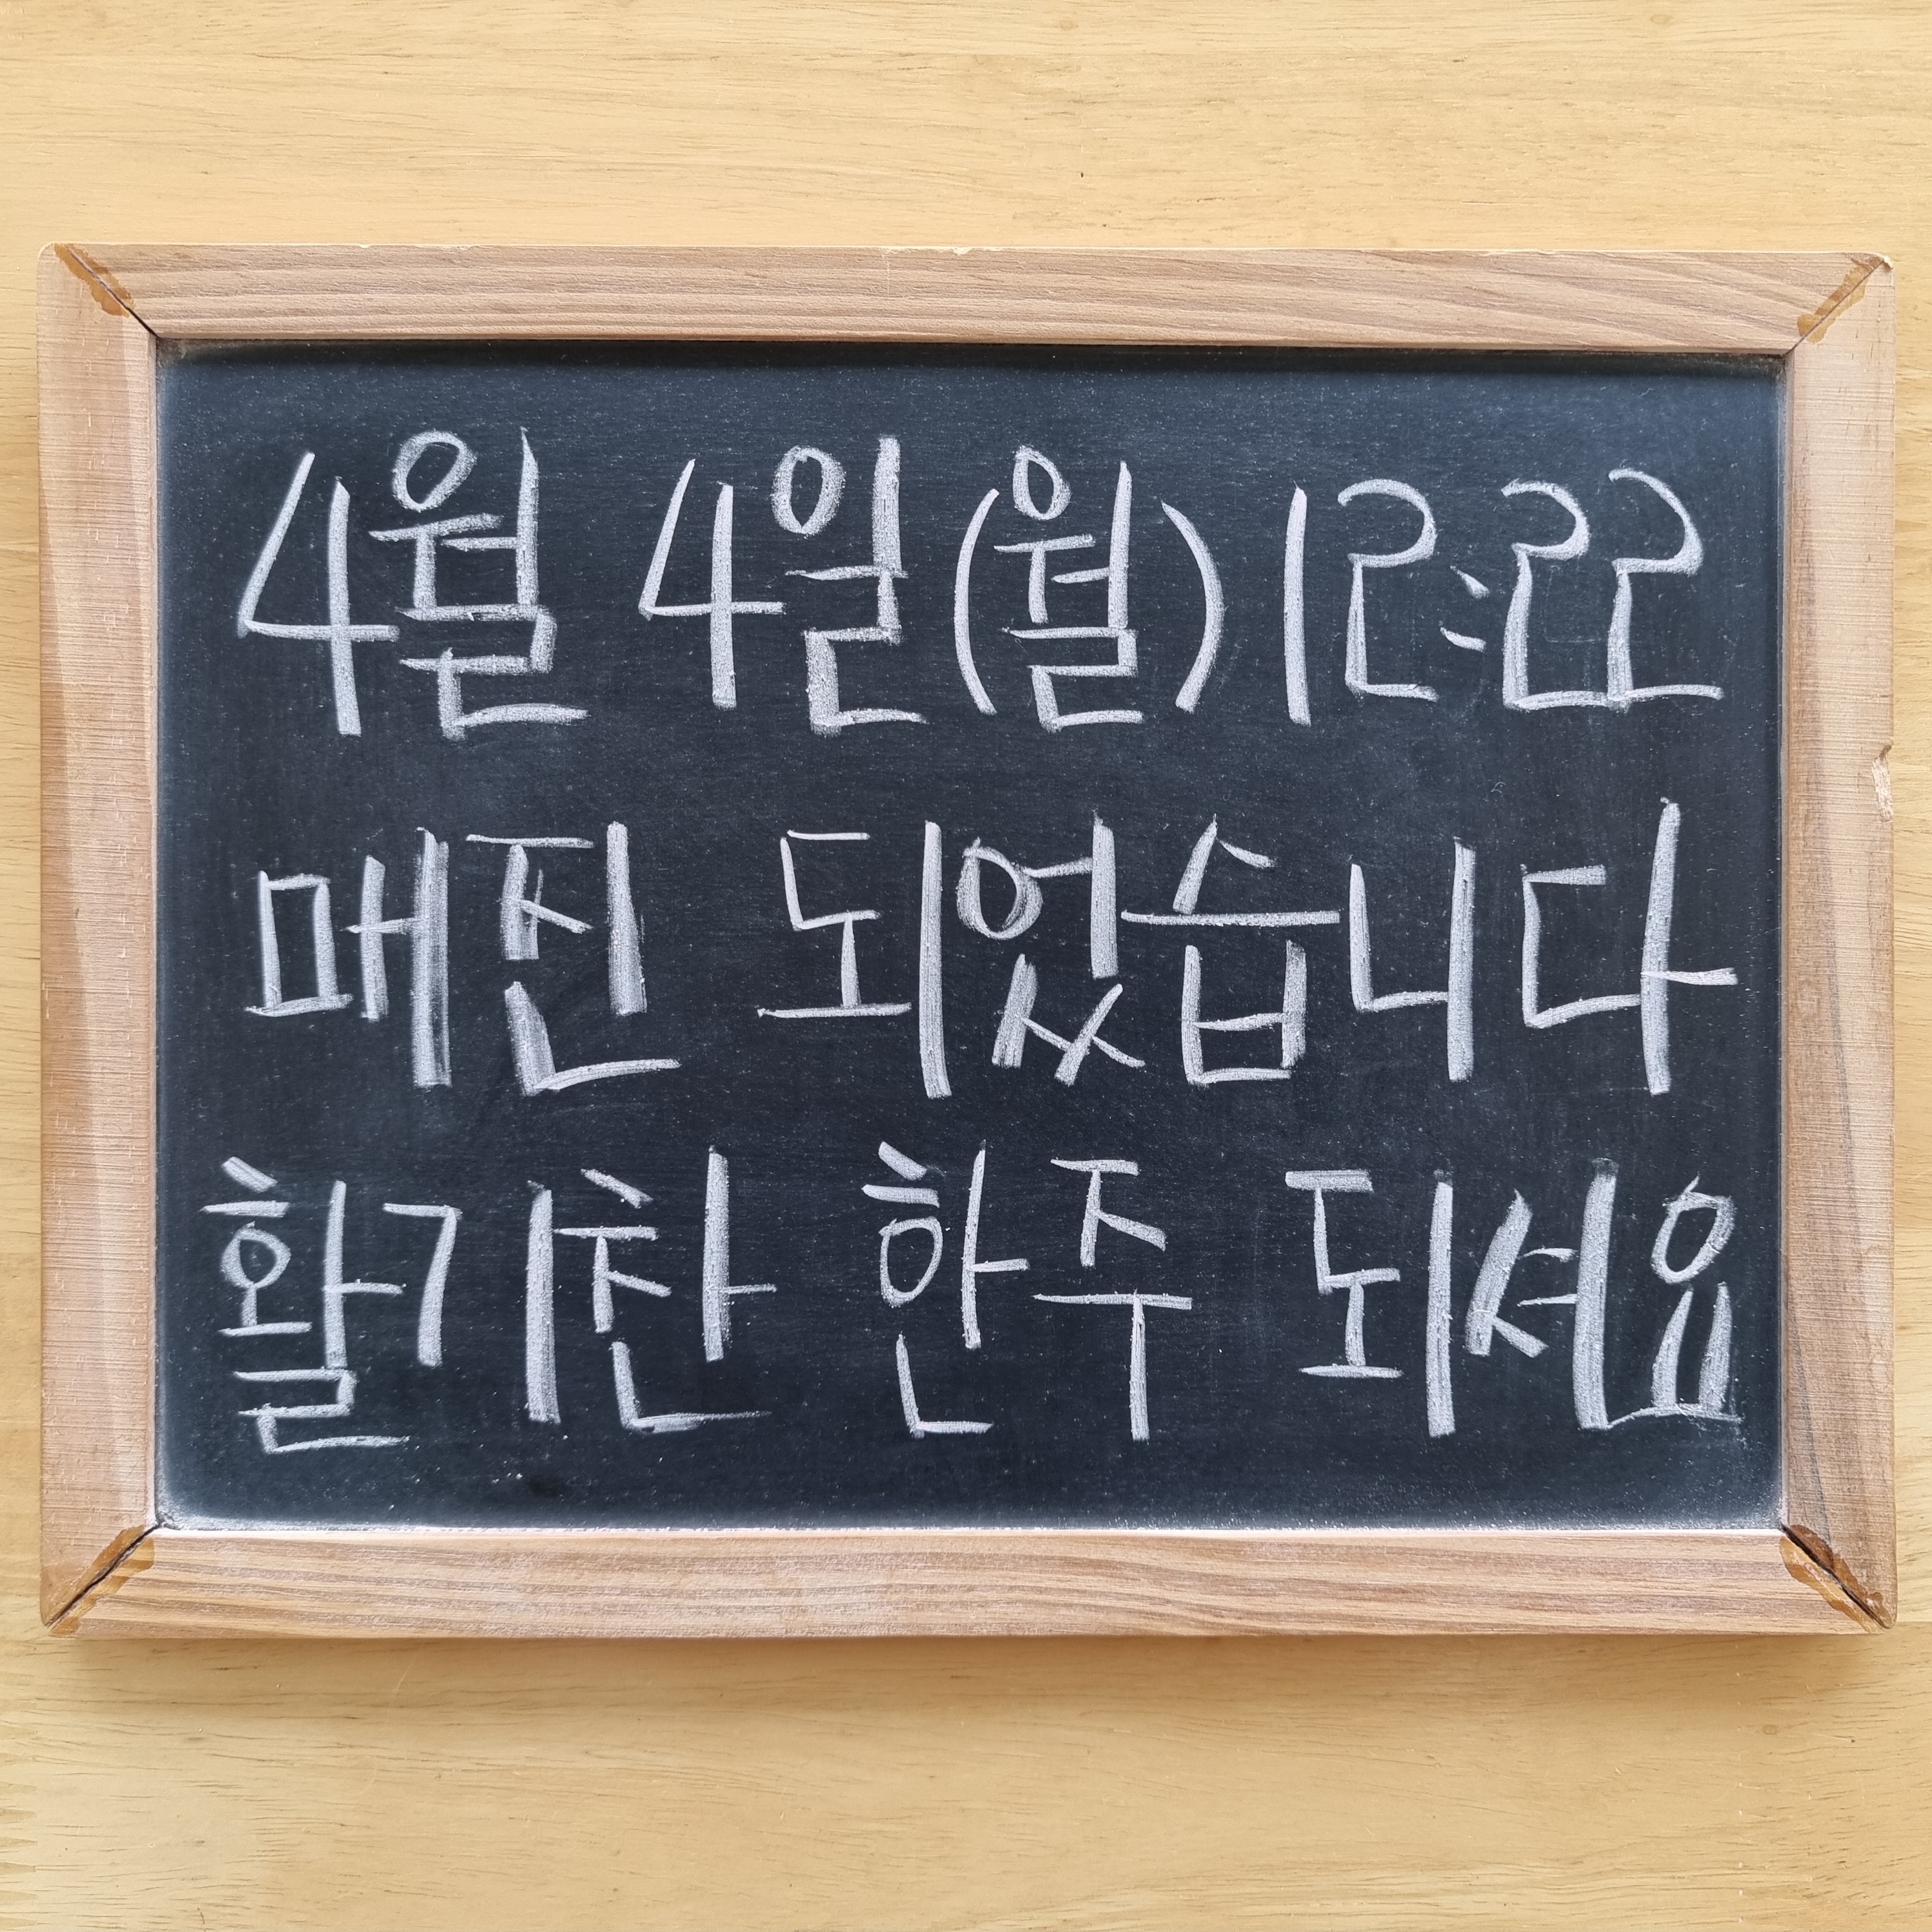 4월 4일(월) 12:22
매진 되었습니다
활기찬 한주 되셔요